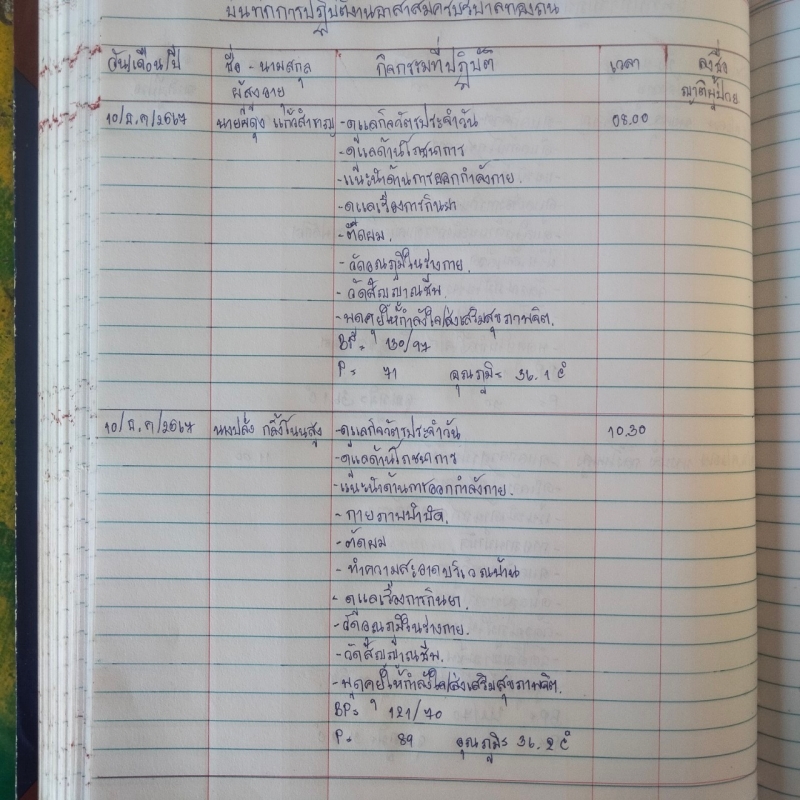 บันทึกการปฏิบัติงานอาสาสมัครบริบาลท้องถิ่น
วัน/เดือน/ปี ชื่อ - นามสกุล กิจกรรมที่ปฏิบัติ เวลา ลงชื่อ
ผู้สูงอายุ ญาติผู้ป่วย
10/ธ.ค/2567 นาย แก้วสำราญ -ดูแลกิจวัตรประจำวัน 08.00
-ดูแลด้านโภชนาการ
-แนะนำด้านการออกกำลังกาย.
-ดูแลเรื่องการกินยา
-ตัดผม.
-วัดอุณภูมิในร่างกาย.
-วัดสัญญาณชีพ.
-พูดคุยให้กำลังใจ/ส่งเสริมสุขภาพจิต.
BP= 130/97
P= 71 อุณภูมิ= 36.1 C°
10/ธ.ค/2567 นางปลั่ง กลิ้งโนนสูง -ดูแลกิจวัตรประจำวัน 10.30
-ดูแลด้านโภชนาการ
-แนะนำด้านการออกกำลังกาย.
-กายภาพบำบัด.
-ตัดผม
-ทำความสะอาดบริเวณบ้าน
-ดูแลเรื่องการกินยา.
-วัดอุณภูมิในร่างกาย.
-วัดสัญญาณชีพ.
-พูดคุยให้กำลังใจ/ส่งเสริมสุขภาพจิต.
BP= 121/70
P= 89 อุณภูมิ= 36.2 C°